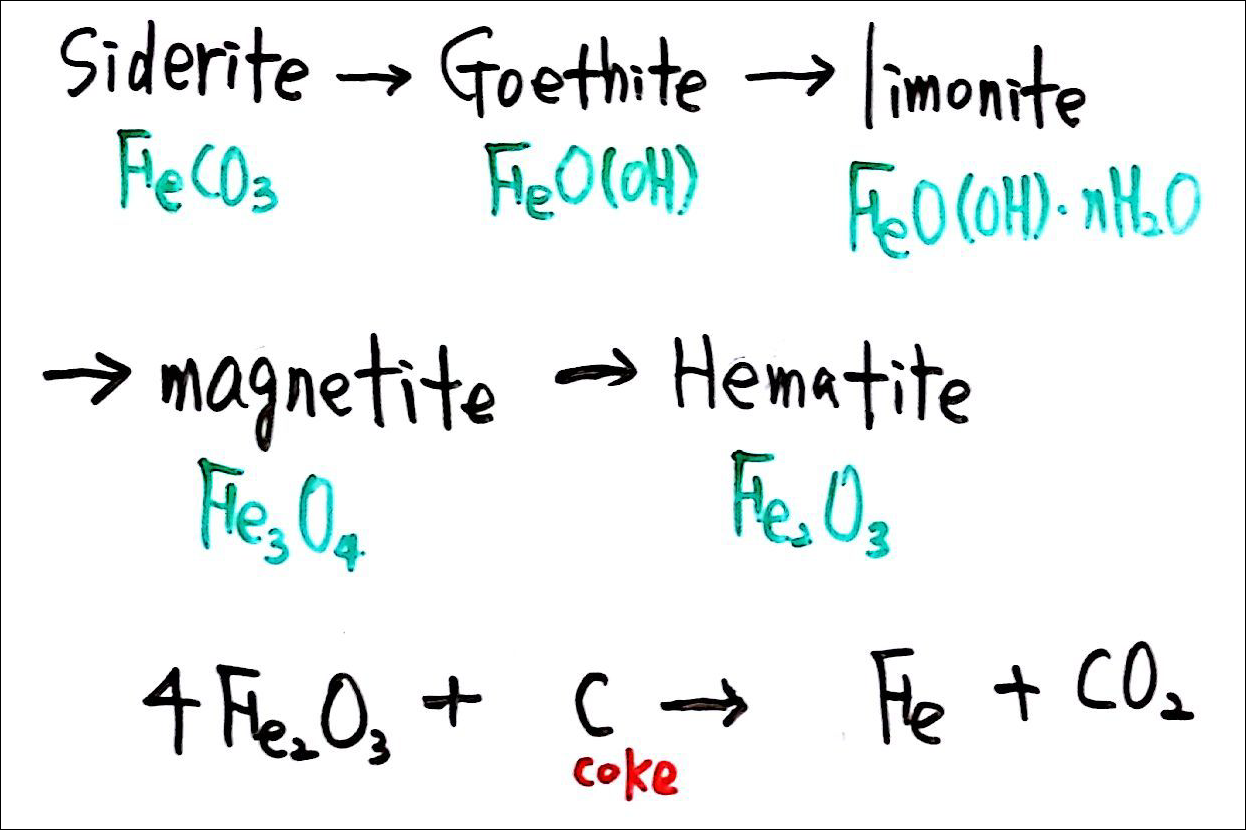 Siderite → Goethite → limonite
FeCO₃ FeO(OH) FeO(OH)·nH₂O
→ magnetite → Hematite
Fe₃O₄ Fe₂O₃
4Fe₂O₃ + C → Fe + CO₂
coke